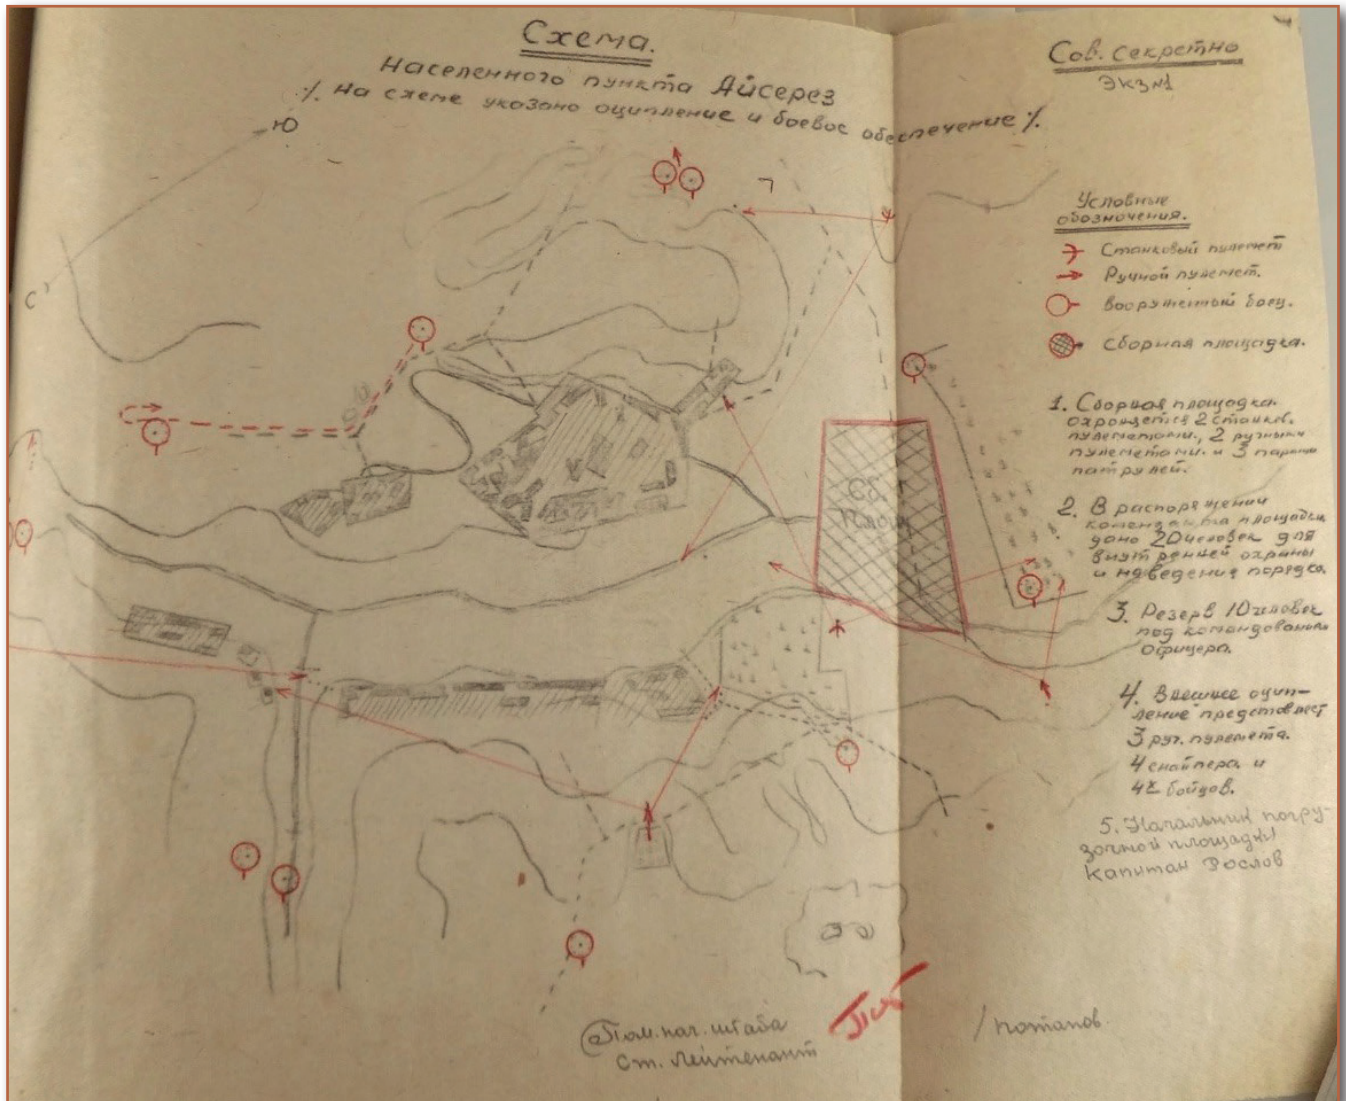 Схема.
Населенного пункта Айсерез
٪ На схеме указано оципление и боевое обеспечение ٪.
Сов. секретно
Экз №1
Ю
С
Условные
обозначения.
Станковый пулемет
Ручной пулемет.
вооруженный боец.
Сборная площадка.
1. Сборная площадка
охроняется 2 станков.
пулеметами, 2 ручными
пулеметами. и 3 парами
патрулей.
2. В распоряжении
коменданта площадки
дано 20 человек для
внутренней охраны
и наведения порядка.
3. Резерв 10 человек
под командованием
офицера.
4. Внешнее оцип-
ление представляет
3 руч. пулемета.
4 снайпера и
бойцов.
5. Начальник погру-
зочной площадки
Капитан Рослов
Сб.
Площ
Пом. нач. штаба
Ст. Лейтенант
/Потапов